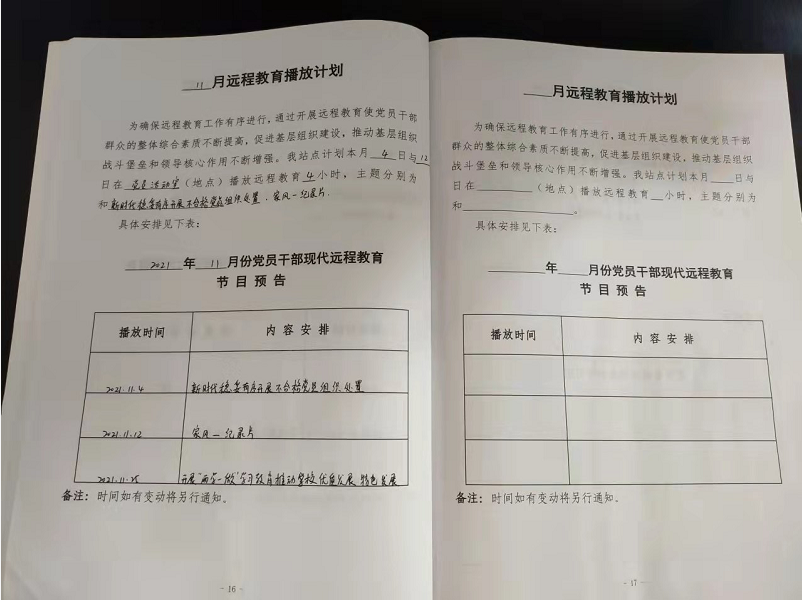 11 月远程教育播放计划
为确保远程教育工作有序进行，通过开展远程教育使党员干部
群众的整体综合素质不断提高，促进基层组织建设，推动基层组织
战斗堡垒和领导核心作用不断增强。我站点计划本月 4 日与 12
日在 党员活动室（地点）播放远程教育 4 小时，主题分别为
和 新时代稳妥有序开展不合格党员组织处置．家风一纪录片．
具体安排见下表：
2021 年 11 月份党员干部现代远程教育
节 目 预 告
播放时间 内 容 安 排
2021.11.4 新时代稳妥有序开展不合格党员组织处置
2021.11.12 家风一纪录片
2021.11.25 开展“两学一做”学习教育推动学校优质发展 特色发展
备注：时间如有变动将另行通知。
- 16 -
月远程教育播放计划
为确保远程教育工作有序进行，通过开展远程教育使党员干部
群众的整体综合素质不断提高，促进基层组织建设，推动基层组织
战斗堡垒和领导核心作用不断增强。我站点计划本月____日与
日在________（地点）播放远程教育__小时，主题分别为
和____________。
具体安排见下表：
____年____月份党员干部现代远程教育
节 目 预 告
播放时间 内 容 安 排
备注：时间如有变动将另行通知。
- 17 -